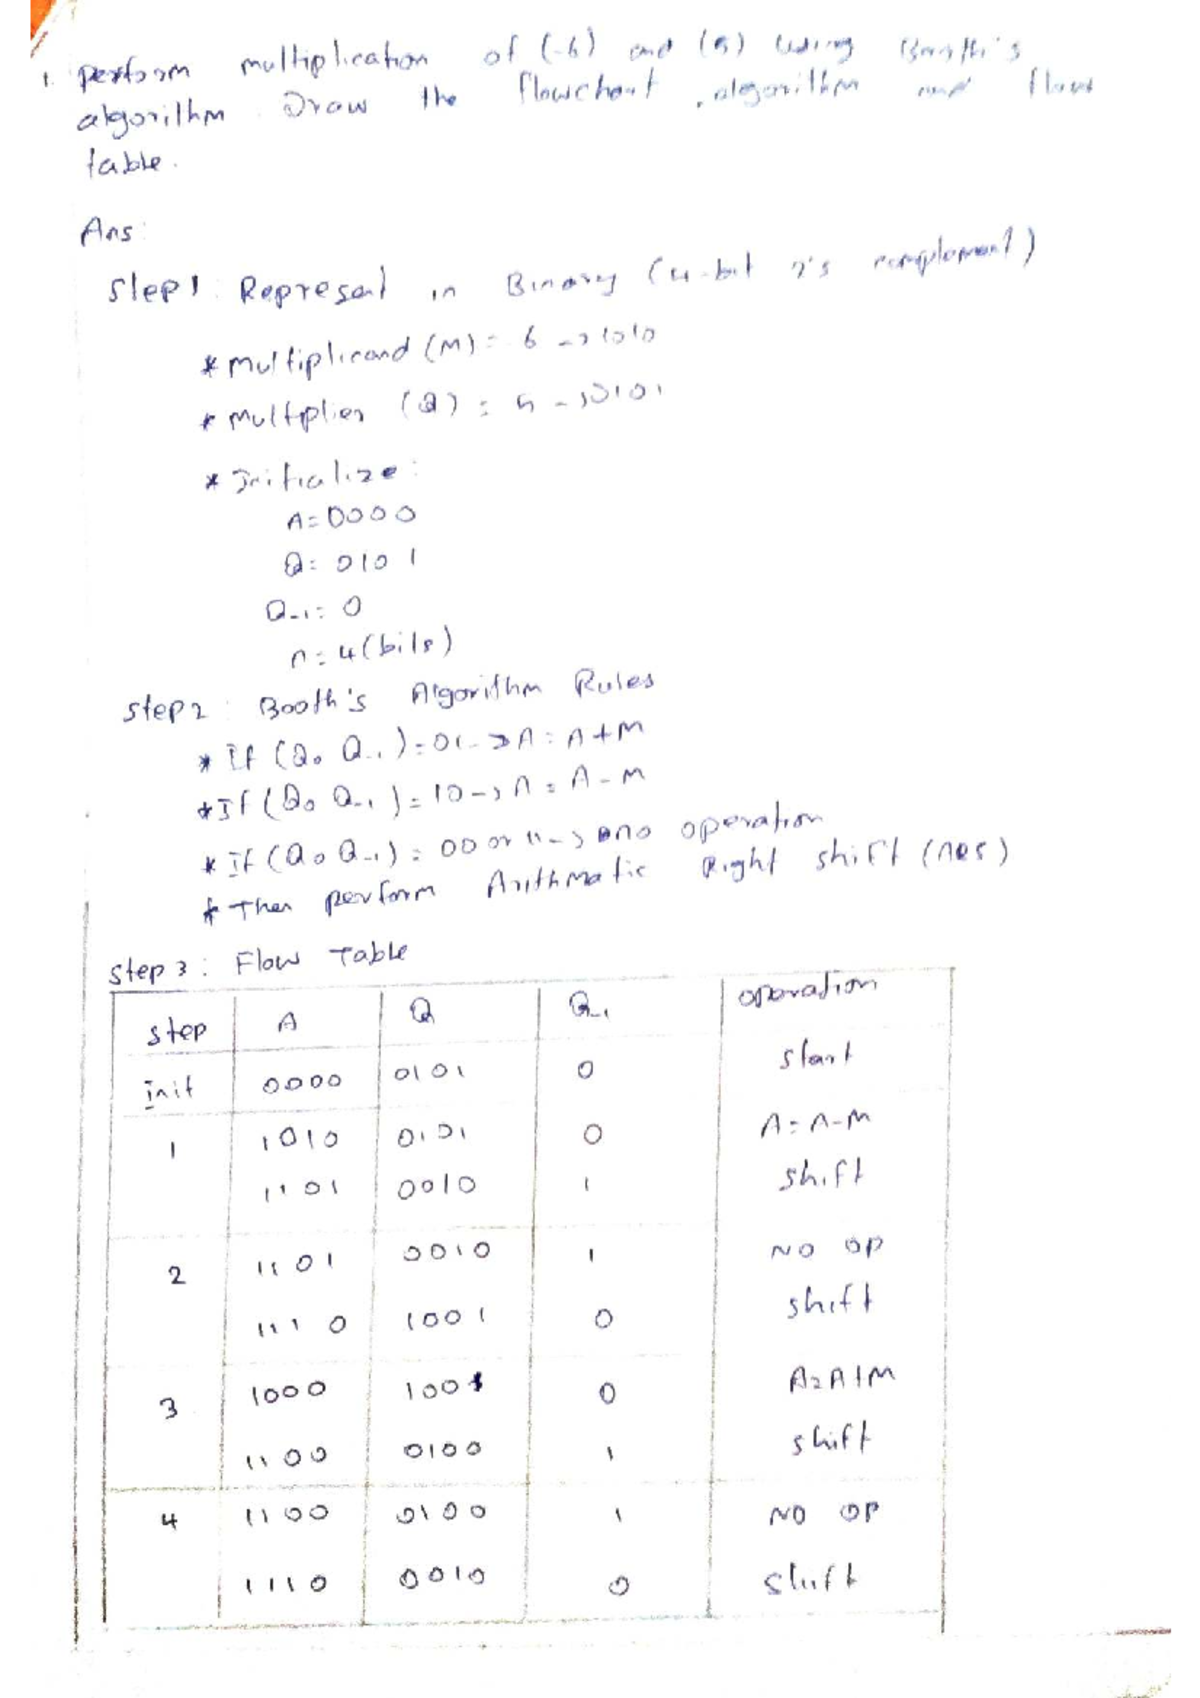 1. perform multiplication of (-6) and (5) using Booth's
algorithm. Draw the flowchart, algorithm and flow
table.
Ans:
Step 1: Represent in Binary (4-bit 2's complement)
* multiplicand (M) = -6 -> 1010
* multiplier (Q) = 5 -> 0101
* Initialize:
A = 0000
Q = 0101
Q-1 = 0
n = 4 (bits)
Step 2: Booth's Algorithm Rules
* If (Q0 Q-1) = 01 -> A = A + M
* If (Q0 Q-1) = 10 -> A = A - M
* If (Q0 Q-1) = 00 or 11 -> no operation
* Then perform Arithmatic Right shift (ARS)
Step 3: Flow Table
step A Q Q-1 operation
Init 0000 0101 0 start
1 1010 0101 0 A = A-M
1101 0010 1 shift
2 1101 0010 1 NO OP
1110 1001 0 shift
3 1000 1001 0 A = A+M
1100 0100 1 shift
4 1100 0100 1 NO OP
1110 0010 0 shift